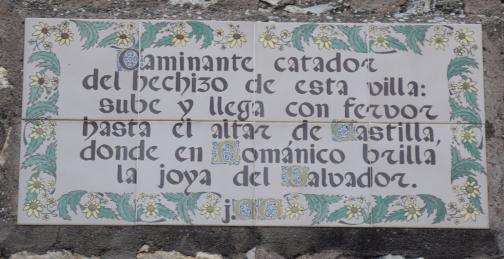 Caminante catador
del hechizo de esta villa:
sube y llega con fervor
hasta el altar de Castilla,
donde en Románico brilla
la joya del Salvador.